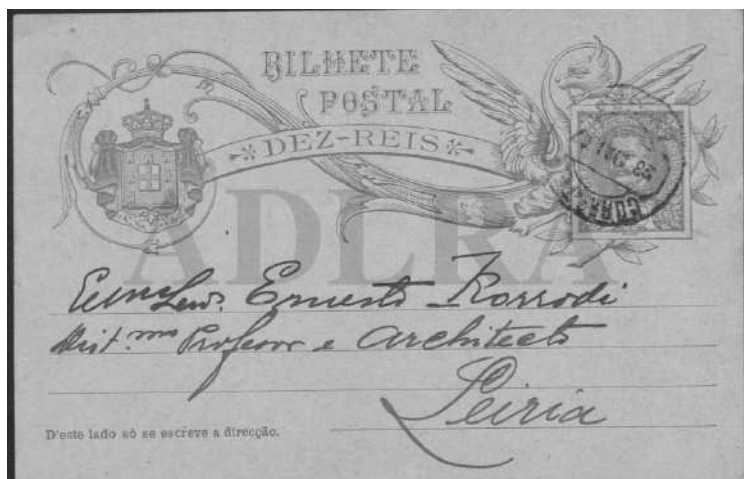 BILHETE
POSTAL
DEZ-REIS
ADLRA
Exmo Snr. Ernesto Korrodi
Dist.mo Professor e Architecto
Leiria
D'este lado só se escreve a direcção.